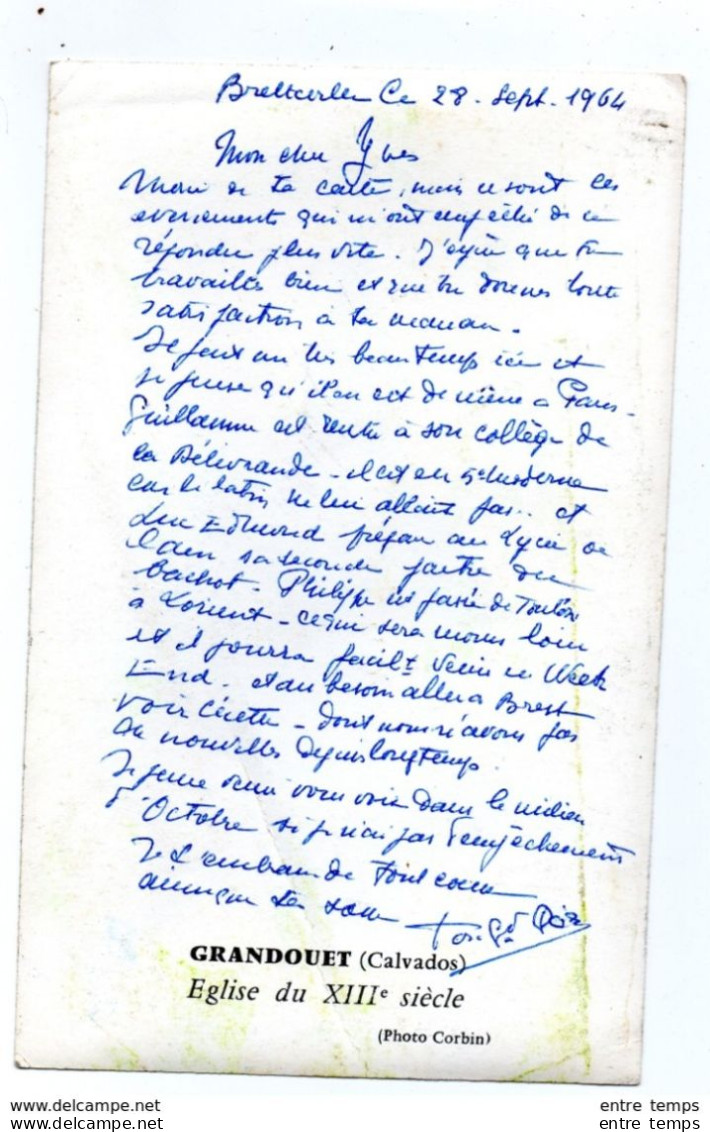 Ce 28 - Sept. 1964
Mon cher Yves
Merci de ta carte, mais ce sont les
evenements qui m'ont empêché de te
répondre plus vite. J'espère que tu
travailles bien et que tu donnes toute
satisfaction à ta maman.
Il fait un très beau temps ici et
je pense qu'il en est de même à Paris -
Guillaume est rentré à son collège de
la Délivrande - il est en 5e moderne
car le latin ne lui allait pas.. et
Luc Edmond prépare au Lycée de
Caen sa seconde partie du
bachot - Philippe est passé de Toulon
à Lorient - ce qui sera moins loin
et il pourra facilt venir en Week
End. et au besoin aller à Brest
voir - dont nous n'avons pas
de nouvelles depuis longtemps.
Je pense venir vous voir dans le milieu
d'Octobre si je n'ai pas d'empêchements
Je t'embrasse de tout coeur
ainsi que ta soeur
GRANDOUET (Calvados)
Eglise du XIIIe siècle
(Photo Corbin)
https://www.delcampe.net
entre temps
https://www.delcampe.net
entre temps